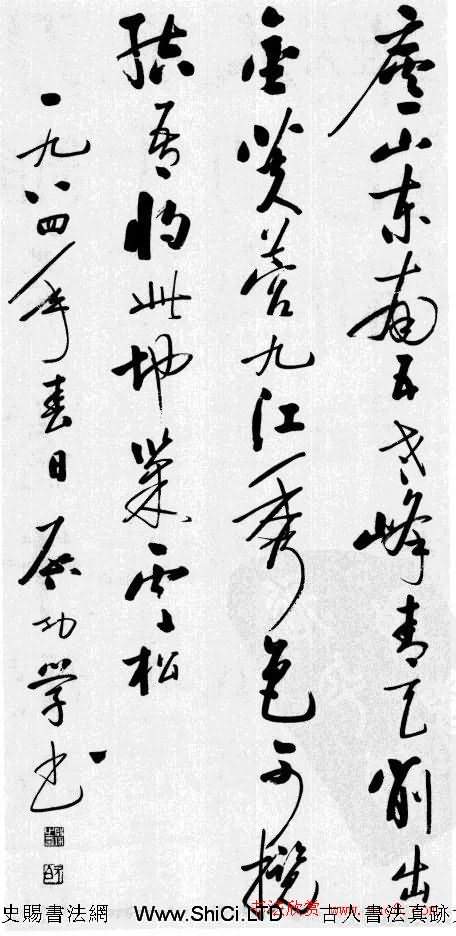 廬山东南五老峰青天削出
金芙蓉九江秀色可攬
结吾将此地巢雲松
一九八四年春日 启功学书
史賜書法網 Www.ShiCi.LTD 古人書法真跡
书法欣赏